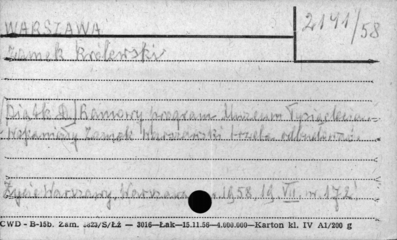 WARSZAWA
2141/58
Zamek Królewski
[Piątk A.] Ramowy program Muzeum Tysiąclecia.
Wspaniały Zamek Warszawski trzeba odbudować.
Życie Warszawy, Warszawa 1958 19 VII nr 172
CWD - B-15b. Zam. 1623/S/Łż — 3016—Łak—15.11.56—4.000.000—Karton kl. IV A1/200 g